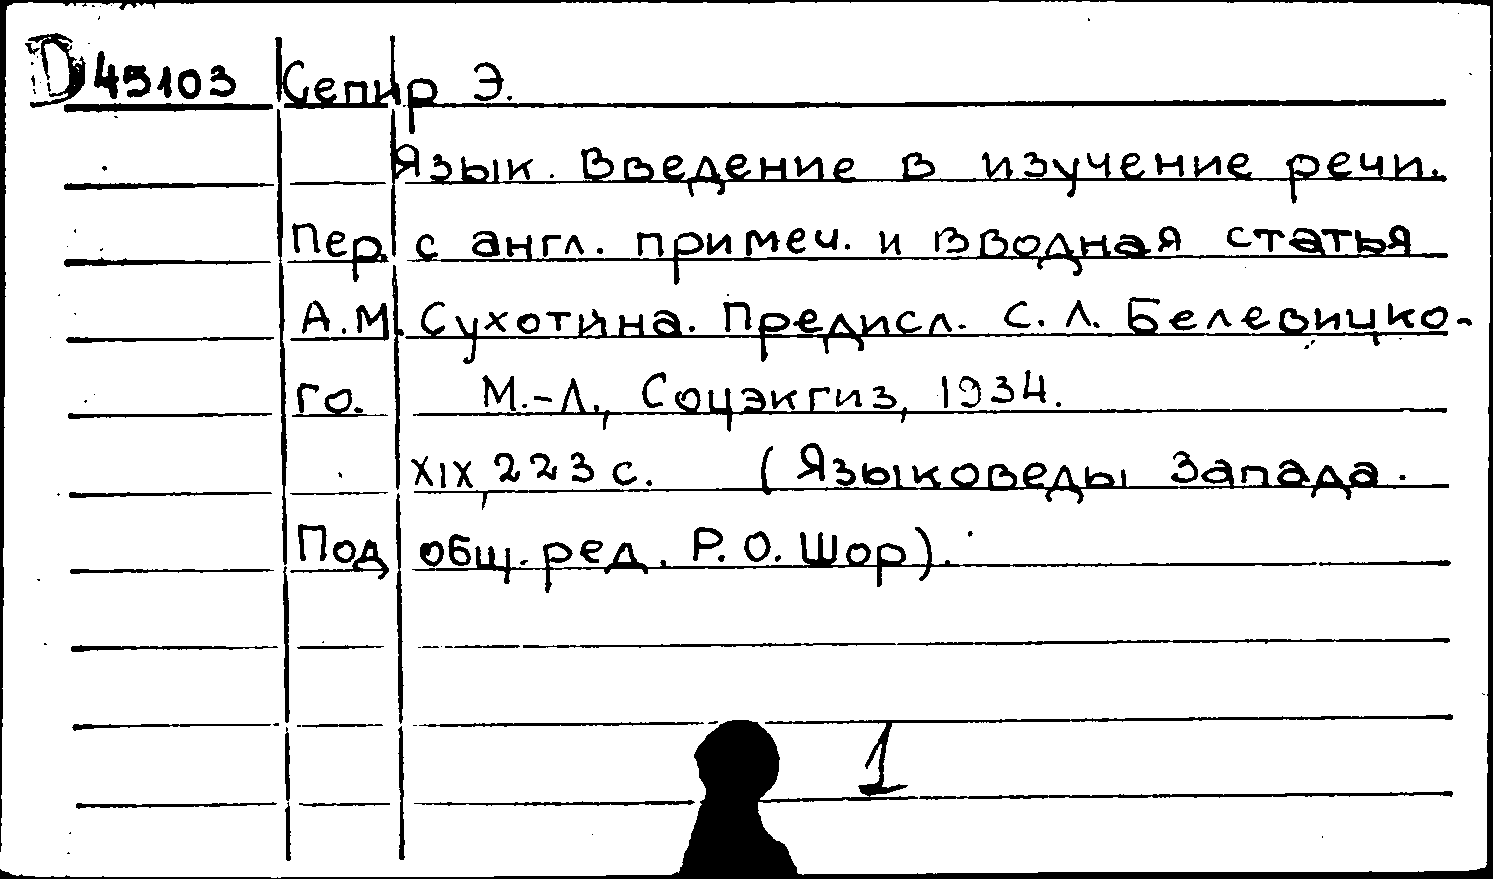 D 45103 Сепир Э.
Язык. Введение в изучение речи.
Пер. с англ. примеч. и вводная статья
А.М. Сухотина. Предисл. С. Л. Белевицко-
го. М.-Л., Соцэкгиз, 1934.
XIX, 223 с. (Языковеды Запада.
Под общ. ред. Р. О. Шор).
1